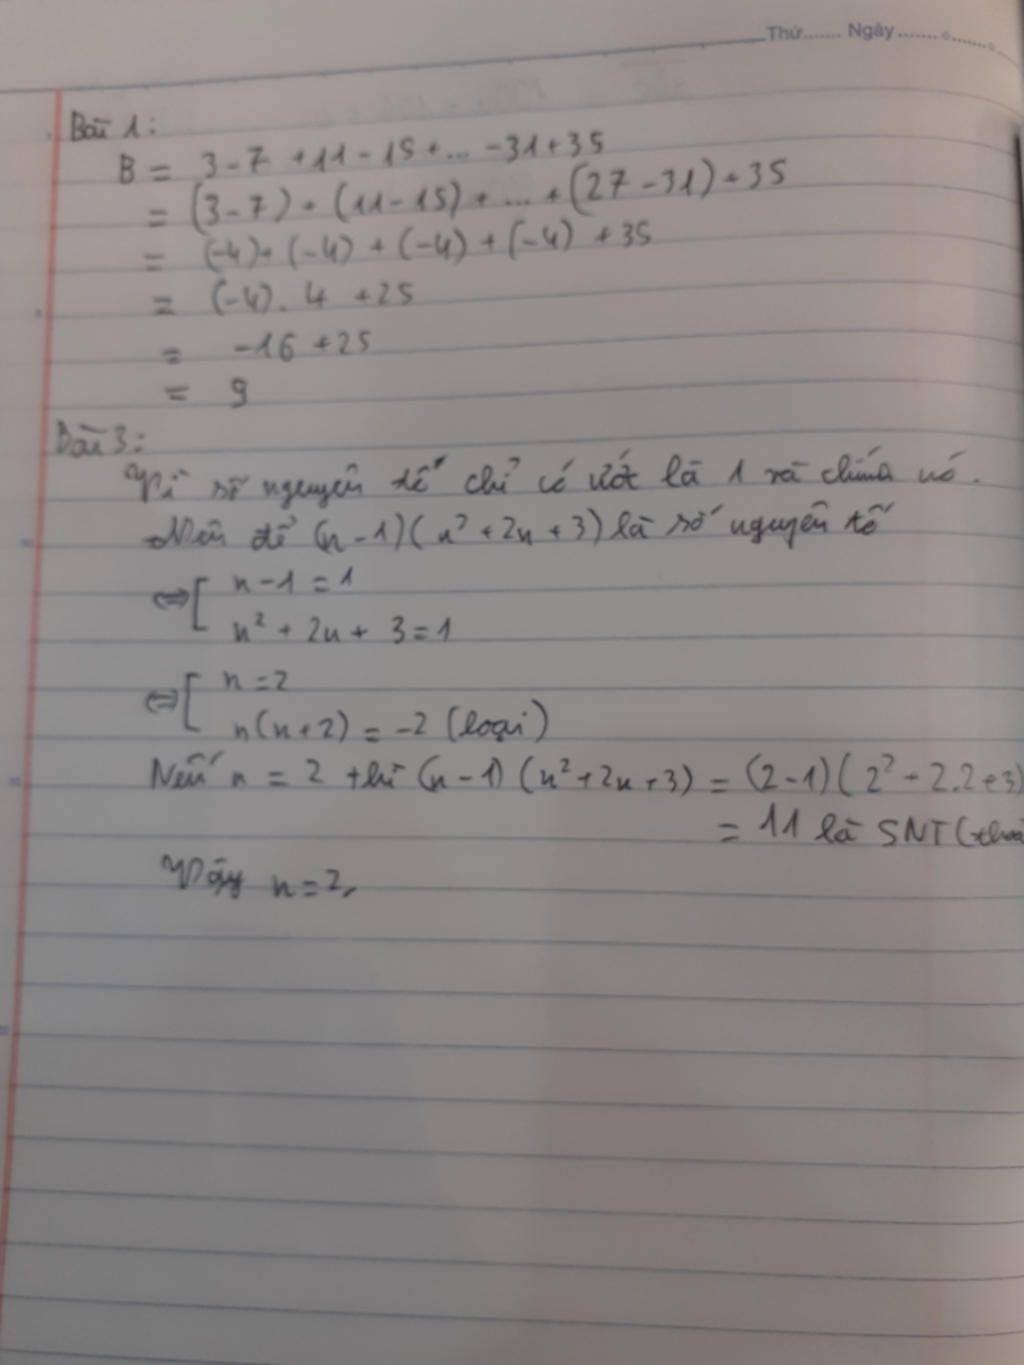 Thứ....... Ngày.......
Bài 1:
B = 3-7 +11-15+... -31+35
= (3-7) + (11-15) + ... + (27-31) + 35
= (-4)+(-4) + (-4) + (-4) + 35
= (-4). 4 +25
= -16 +25
= 9
Bài 3:
Vì số nguyên tố chỉ có ước là 1 và chính nó.
Nên để (n-1)(n²+2n+3) là số nguyên tố
⇔[ n-1=1
n²+2n+ 3=1
⇔[ n=2
n(n+2) = -2 (loại)
Nếu n = 2 thì (n-1) (n²+2n+3) = (2-1)(2²+2.2+3)
= 11 là SNT(
Vậy n=2.